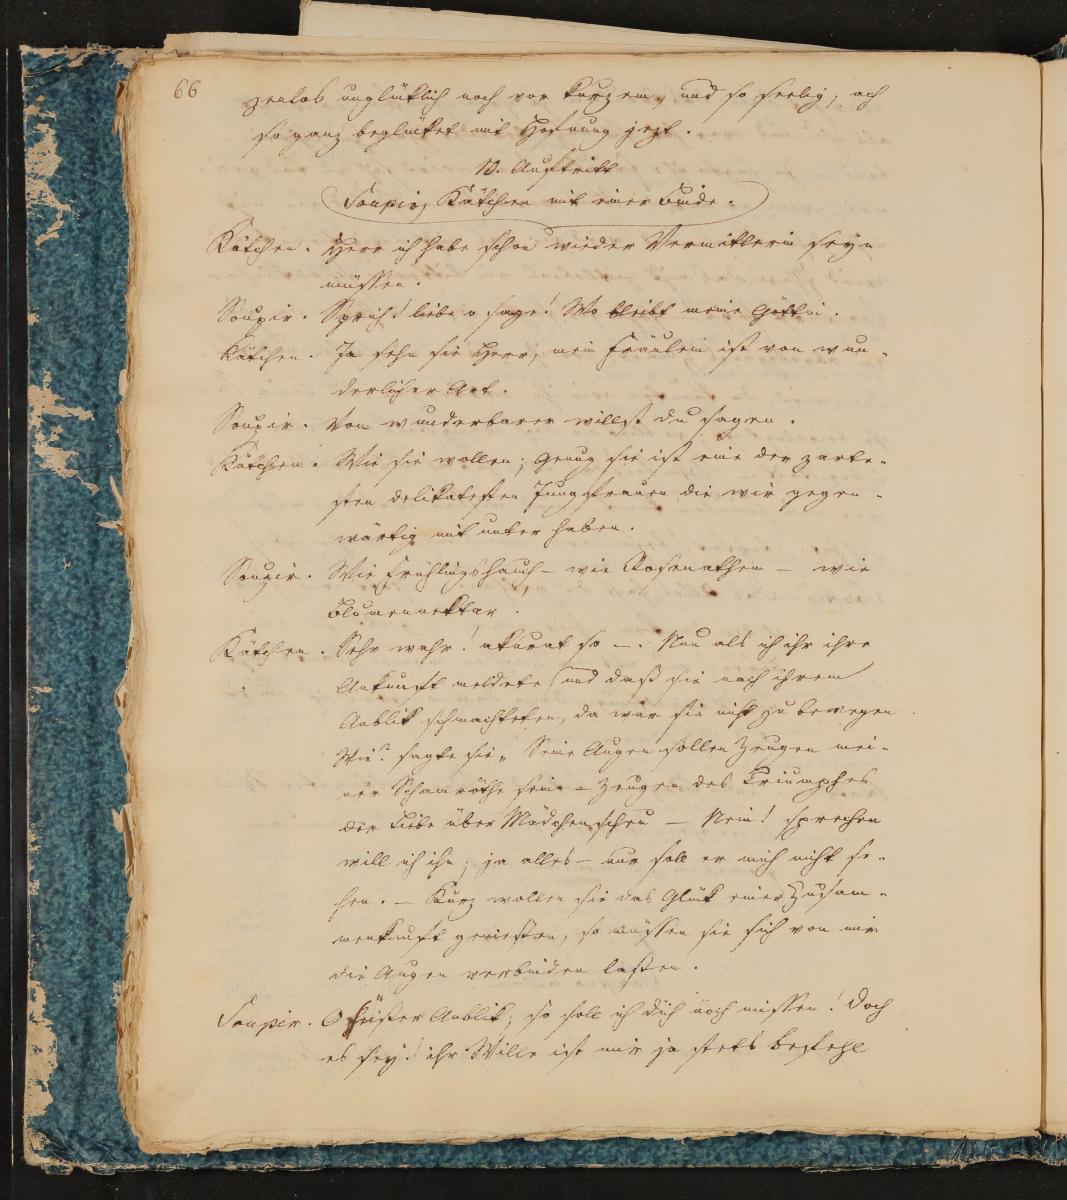 66
zenlos unglüklich noch vor kurzem, und so seelig, ach
so ganz beglücket mit Hofnung jezt.
10. Auftritt
Soupir, Kätchen mit einer Binde.
Kätchen. Herr ich habe schon wieder Vermitlerin seyn
müssen.
Soupir. Sprich! liebe o sage! Wo bleibt meine Göttin.
Kätchen. Ja sehn sie Herr, mein Fräulein ist von wun-
derlicher Art.
Soupir. Von wunderbarer willst du sagen.
Kätchen. Wie sie wollen; genug sie ist eine der zarte-
sten delikatesten Jungfrauen die wir gegen-
wärtig mit unter haben.
Soupir. Wie Frühlingshauch – wie Rosenathem – wie
Blumennektar.
Kätchen. Sehr wahr! akurat so –. Nun als ich ihr ihre
Ankunft meldete und daß sie nach ihrem
Anblik schmachteten, da war sie nicht zu bewegen
Wie? sagte sie „ Seine Augen sollen Zeugen mei-
ner Schamröthe sein – Zeugen des Triumphes
der Liebe über Mädchenscheu – Nein! sprechen
will ich ihn; ja alles – nur soll er mich nicht se-
hen. – Kurz wollen sie das Glük einer Zusam-
menkunft genießen, so müssen sie sich von mir
die Augen verbinden laßen.
Soupir. O süßer Anblik, so soll ich dich noch missen! Doch
es sey! ihr Wille ist mir ja stets Befehl